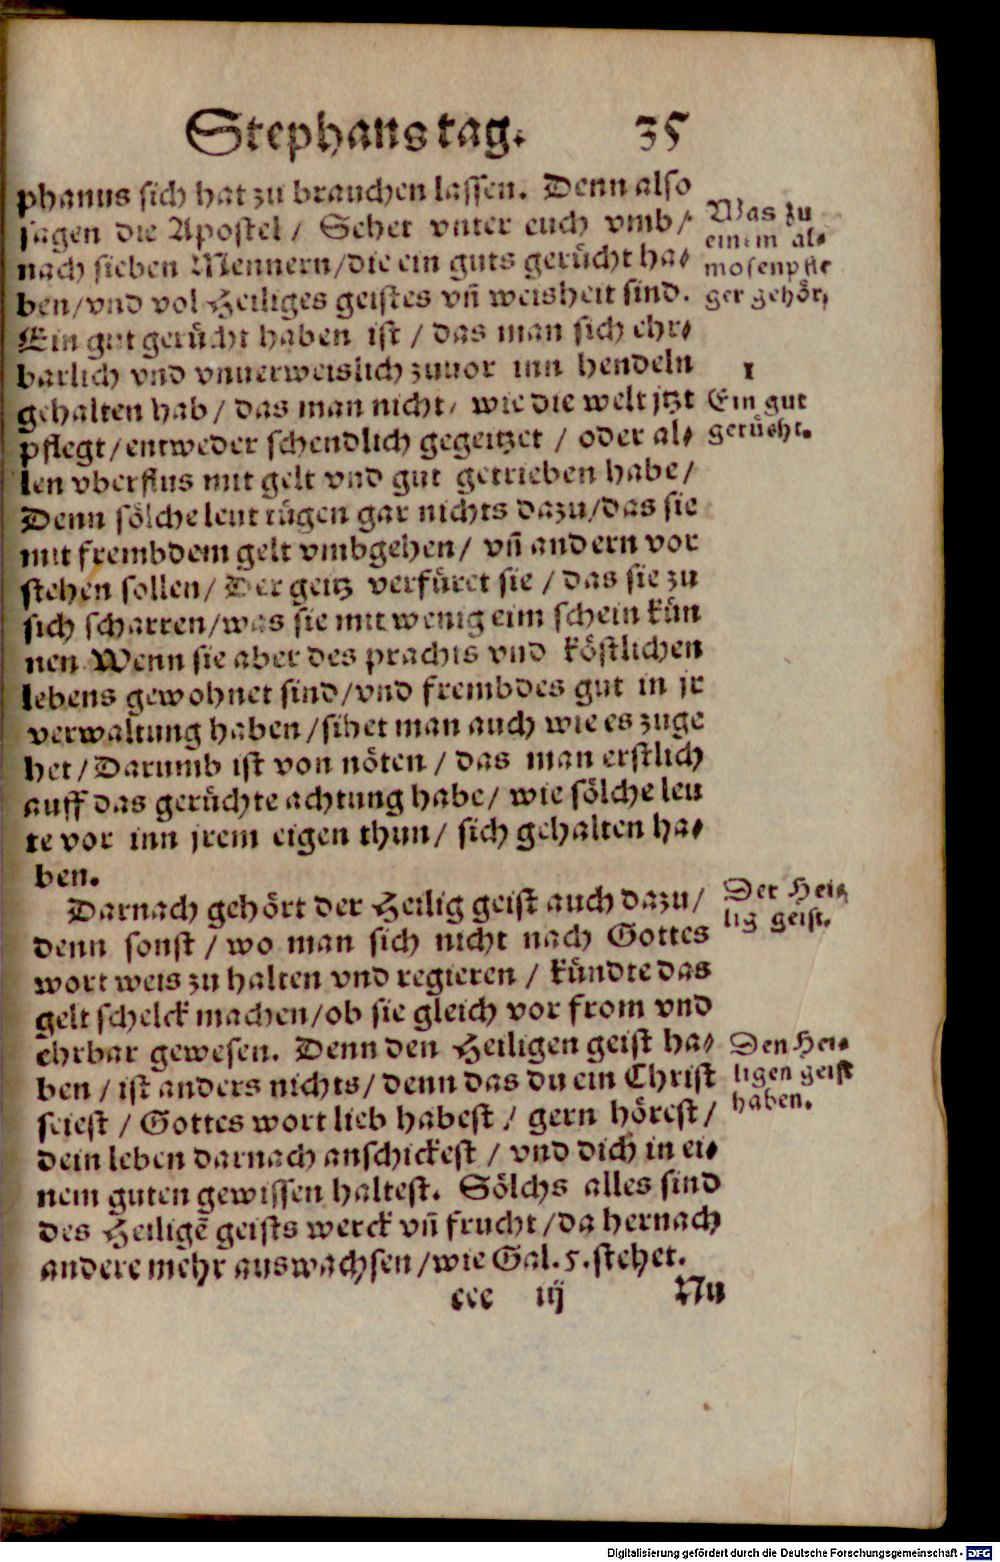 Stephans tag. 35
phanus sich hat zu brauchen lassen. Denn also
sagen die Apostel / Sehet vnter euch vmb /
nach sieben Mennern / die ein guts gerücht ha-
ben / vnd vol Heiliges geistes vñ weisheit sind.
Ein gut gerücht haben ist / das man sich ehr-
barlich vnd vnuerweislich zuuor inn hendeln
gehalten hab / das man nicht / wie die welt jtzt
pflegt / entweder schendlich gegeitzet / oder al-
len vberflus mit gelt vnd gut getrieben habe /
Denn sölche leut tügen gar nichts dazu / das sie
mit frembdem gelt vmbgehen / vñ andern vor
stehen sollen / Der geitz verfüret sie / das sie zu
sich scharren / was sie mit wenig eim schein kün
nen Wenn sie aber des prachts vnd köstlichen
lebens gewohnet sind / vnd frembdes gut in jr
verwaltung haben / sihet man auch wie es zuge
het / Darumb ist von nöten / das man erstlich
auff das gerüchte achtung habe / wie sölche leu
te vor inn jrem eigen thun / sich gehalten ha-
ben.
Darnach gehört der Heilig geist auch dazu /
denn sonst / wo man sich nicht nach Gottes
wort weis zu halten vnd regieren / kündte das
gelt schelck machen / ob sie gleich vor from vnd
ehrbar gewesen. Denn den Heiligen geist ha-
ben / ist anders nichts / denn das du ein Christ
seiest / Gottes wort lieb habest / gern hörest /
dein leben darnach anschickest / vnd dich in ei-
nem guten gewissen haltest. Sölchs alles sind
des Heiligē geists werck vñ frucht / da hernach
andere mehr auswachsen / wie Gal. 5. stehet.
ccc iij Nu
Was zu
einem al-
mosenpfle
ger gehör.
1
Ein gut
gerücht.
Der Hei-
lig geist.
Den Hei-
ligen geist
haben.
Digitalisierung gefördert durch die Deutsche Forschungsgemeinschaft - DFG